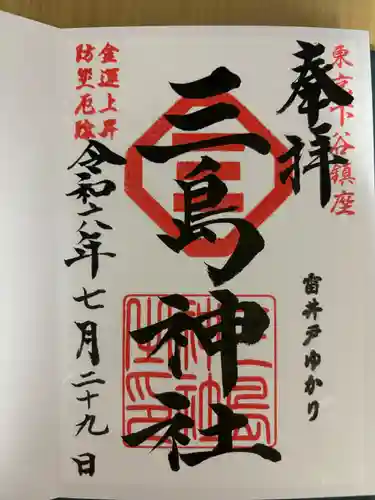 東京下谷鎮座
奉拝
雷井戸ゆかり
三島神社
金運上昇
防災厄除
令和六年七月二十九日